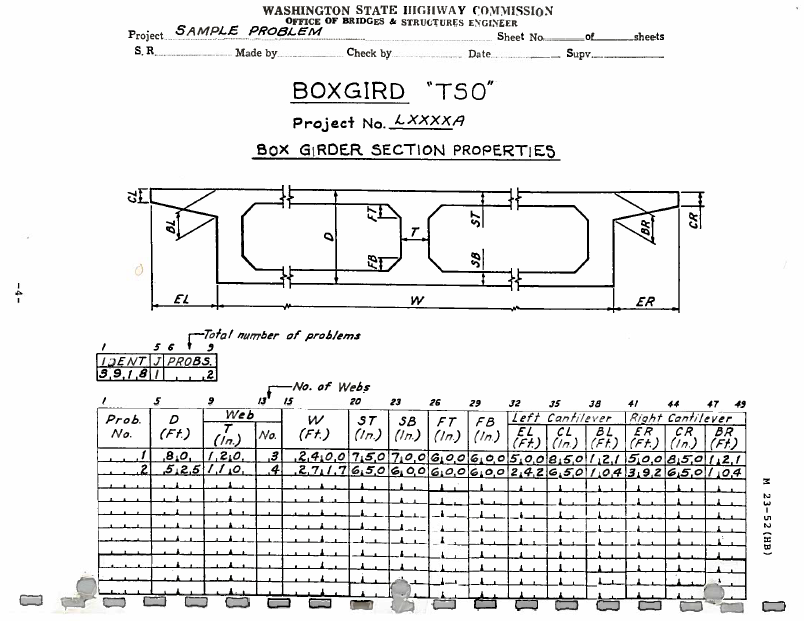 WASHINGTON STATE HIGHWAY COMMISSION
OFFICE OF BRIDGES & STRUCTURES ENGINEER
Project SAMPLE PROBLEM Sheet No. of sheets
S. R. Made by Check by Date Supv.
BOXGIRD "TSO"
Project No. LXXXXA
BOX GIRDER SECTION PROPERTIES
CL BL D FT FB T ST SB BR CR
EL W ER
-4-
Total number of problems
1 5 6 9
IDENT J PROBS.
3,9,1,8 1 2
No. of Webs
1 5 9 13 15 20 23 26 29 32 35 38 41 44 47 49
Prob. No. D (Ft.) Web T (In.) No. W (Ft.) ST (In.) SB (In.) FT (In.) FB (In.) Left Cantilever EL (Ft) CL (In.) BL (Ft) Right Cantilever ER (Ft) CR (In.) BR (Ft)
1 8.0 1 2.0 3 2 4.0 0 7.5 0 7.0 0 6.0 0 6.0 0 5.0 0 8.5 0 1.2 1 5.0 0 8.5 0 1.2 1
2 5.2 5 1 1.0 4 2 7.1 7 6.5 0 6.0 0 6.0 0 6.0 0 2.4 2 6.5 0 1.0 4 3.9 2 6.5 0 1.0 4
M 23-52 (HB)